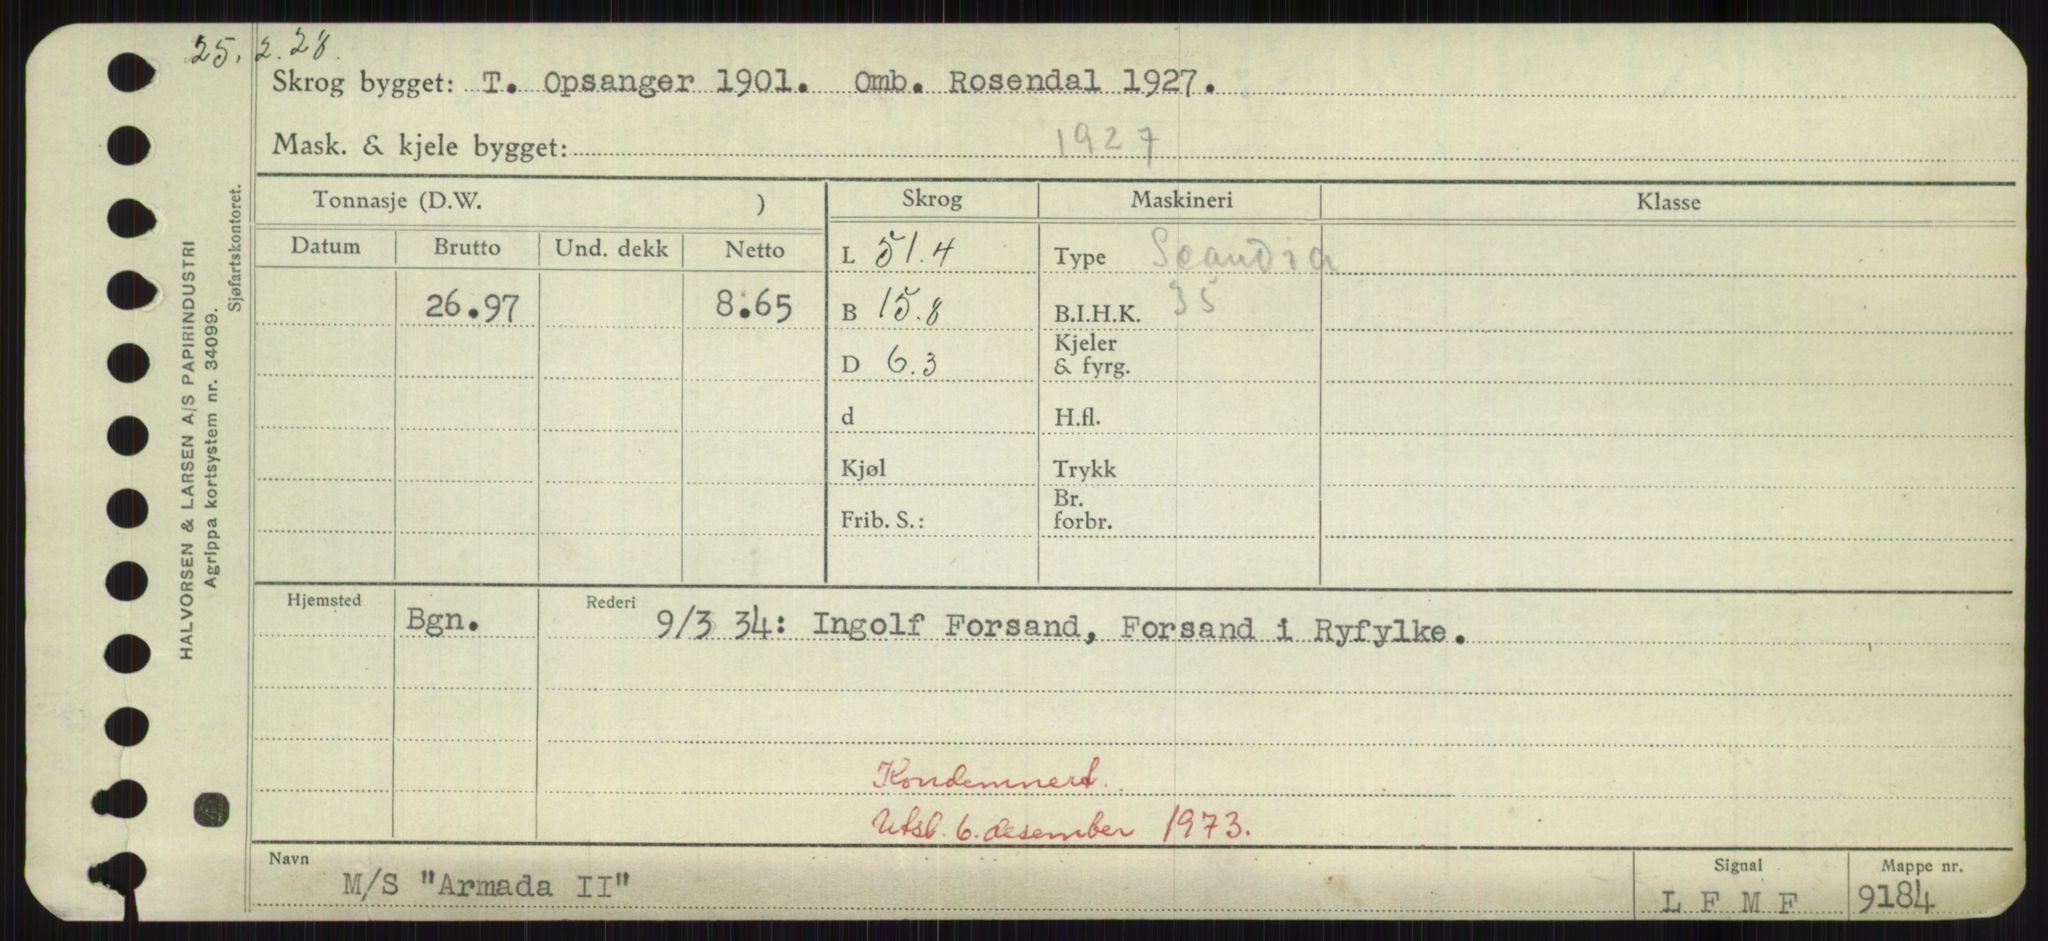 25.2.28.
Skrog bygget: T. Opsanger 1901. Omb. Rosendal 1927.
Mask. & kjele bygget: 1927
Tonnasje (D.W. ) Skrog Maskineri Klasse
Datum Brutto Und. dekk Netto L 51.4 Type Scandia
26.97 8.65 B 15.8 B.I.H.K. 35
D 6.3 Kjeler
& fyrg.
d H.fl.
Kjøl Trykk
Frib. S.: Br.
forbr.
Hjemsted Bgn. Rederi 9/3 34: Ingolf Forsand, Forsand i Ryfylke.
Kondemnert.
Utsl. 6. desember 1973.
Navn M/S "Armada II" Signal L F M F Mappe nr. 9184
HALVORSEN & LARSEN A/S PAPIRINDUSTRI
Agrippa kortsystem nr. 34099.
Sjøfartskontoret.